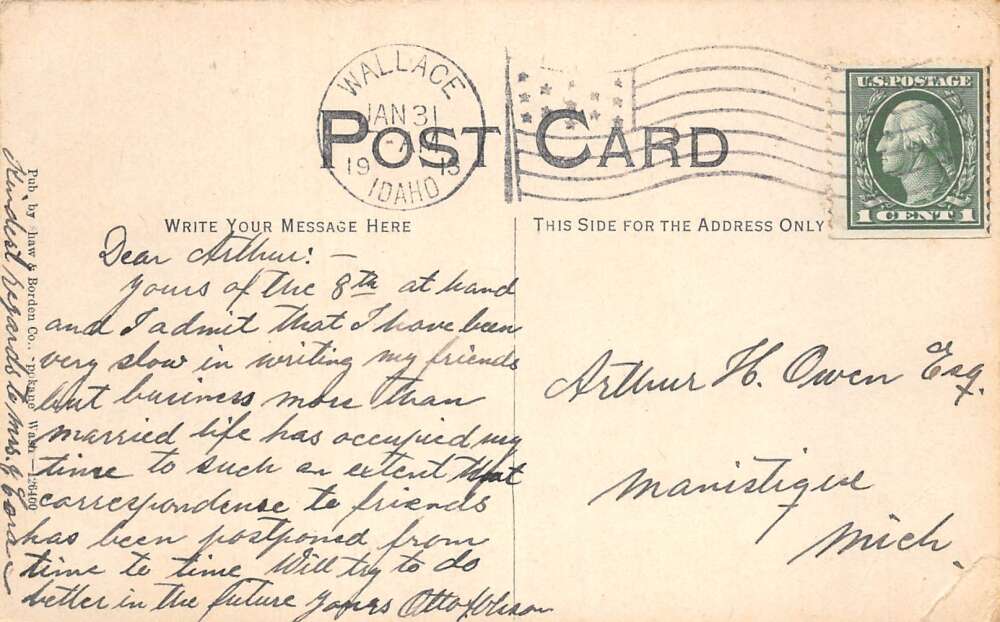 WALLACE
JAN 31
-AM
19 13
IDAHO
POST CARD
U.S. POSTAGE
1 CENT 1
WRITE YOUR MESSAGE HERE
THIS SIDE FOR THE ADDRESS ONLY
Dear Arthur: –
Yours of the 8th at hand
and I admit that I have been
very slow in writing my friends
but business more than
married life has occupied my
time to such an extent that
correspondense to friends
has been postponed from
time to time Will try to do
better in the future Yours Otto
Arthur H. Owen Esq.
Manistique
Mich.
Pub. by haw & Borden Co., pokane Wash —126400
Kindest regards to Mrs. &